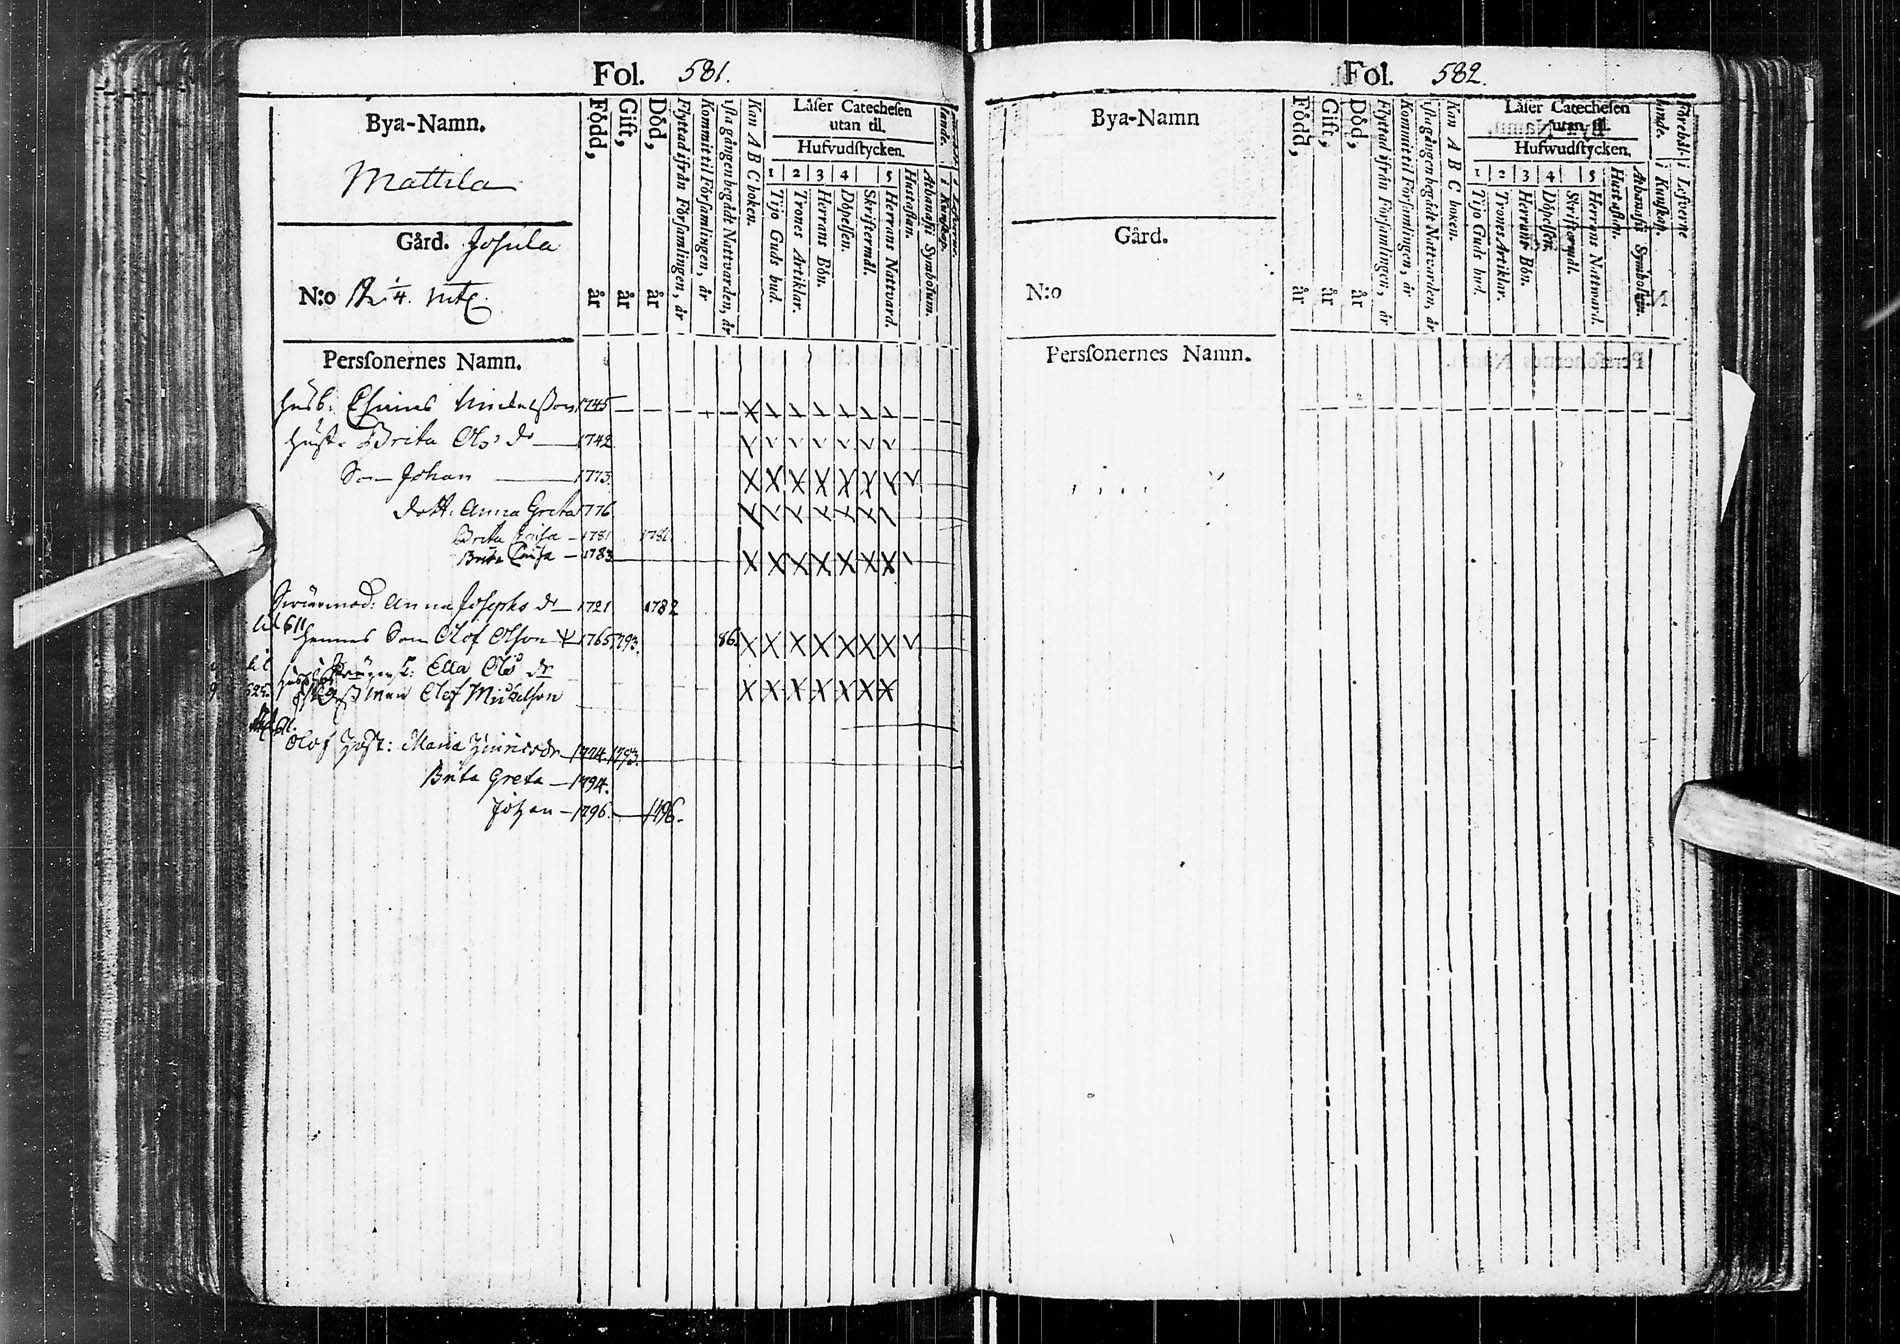 Fol. 581.
Bya-Namn.
Mattila
Gård. Josula
N:o 1/4. mtl.
Född, år
Gift, år
Död, år
Flyttad ifrån Församlingen, år
Kommit til Församlingen, år
1sta gången begådt Nattvarden, år
Kan A B C boken.
Läser Catechesen
utan til.
Hufvudstycken.
1 Tijo Guds bud.
2 Trones Artiklar.
3 Herrans Bön.
4 Döpelsen.
Skriftermål.
5 Herrans Nattvard.
Hustaflan.
Athanasii Symbolum.
Perssonernes Namn.
Husb. Michelsson 1745
Hust. Brita Ols dr 1742
Son Johan 1773
Dott. Anna Greta 1776
Brita Caisa 1781 1782
Brita Caisa 1783
Anna Josephs dr 1721 1782
Hennes Son Olof Olsson 1765 1793. 86
Ella Ols dr
Olof Michelsson
Olof Hust: Maria 1774. 1793.
Brita Greta 1794.
Johan 1796. 1796.
Fol. 582.
Bya-Namn
Gård.
N:o
Född, år
Gift, år
Död, år
Flyttad ifrån Församlingen, år
Kommit til Församlingen, år
1sta gången begådt Nattvarden, år
Kan A B C boken.
Läser Catechesen
utan til.
Hufwudstycken.
1 Tijo Guds bud.
2 Trones Artiklar.
3 Herrans Bön.
4 Döpelsen.
Skriftermål.
5 Herrans Nattward.
Hustaflan.
Athanasii Symbolum.
Perssonernes Namn.